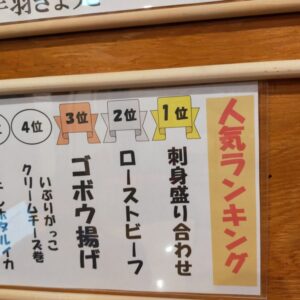 人気ランキング
1位
刺身盛り合わせ
2位
ローストビーフ
3位
ゴボウ揚げ
4位
いぶりがっこ
クリームチーズ巻
ホタルイカ